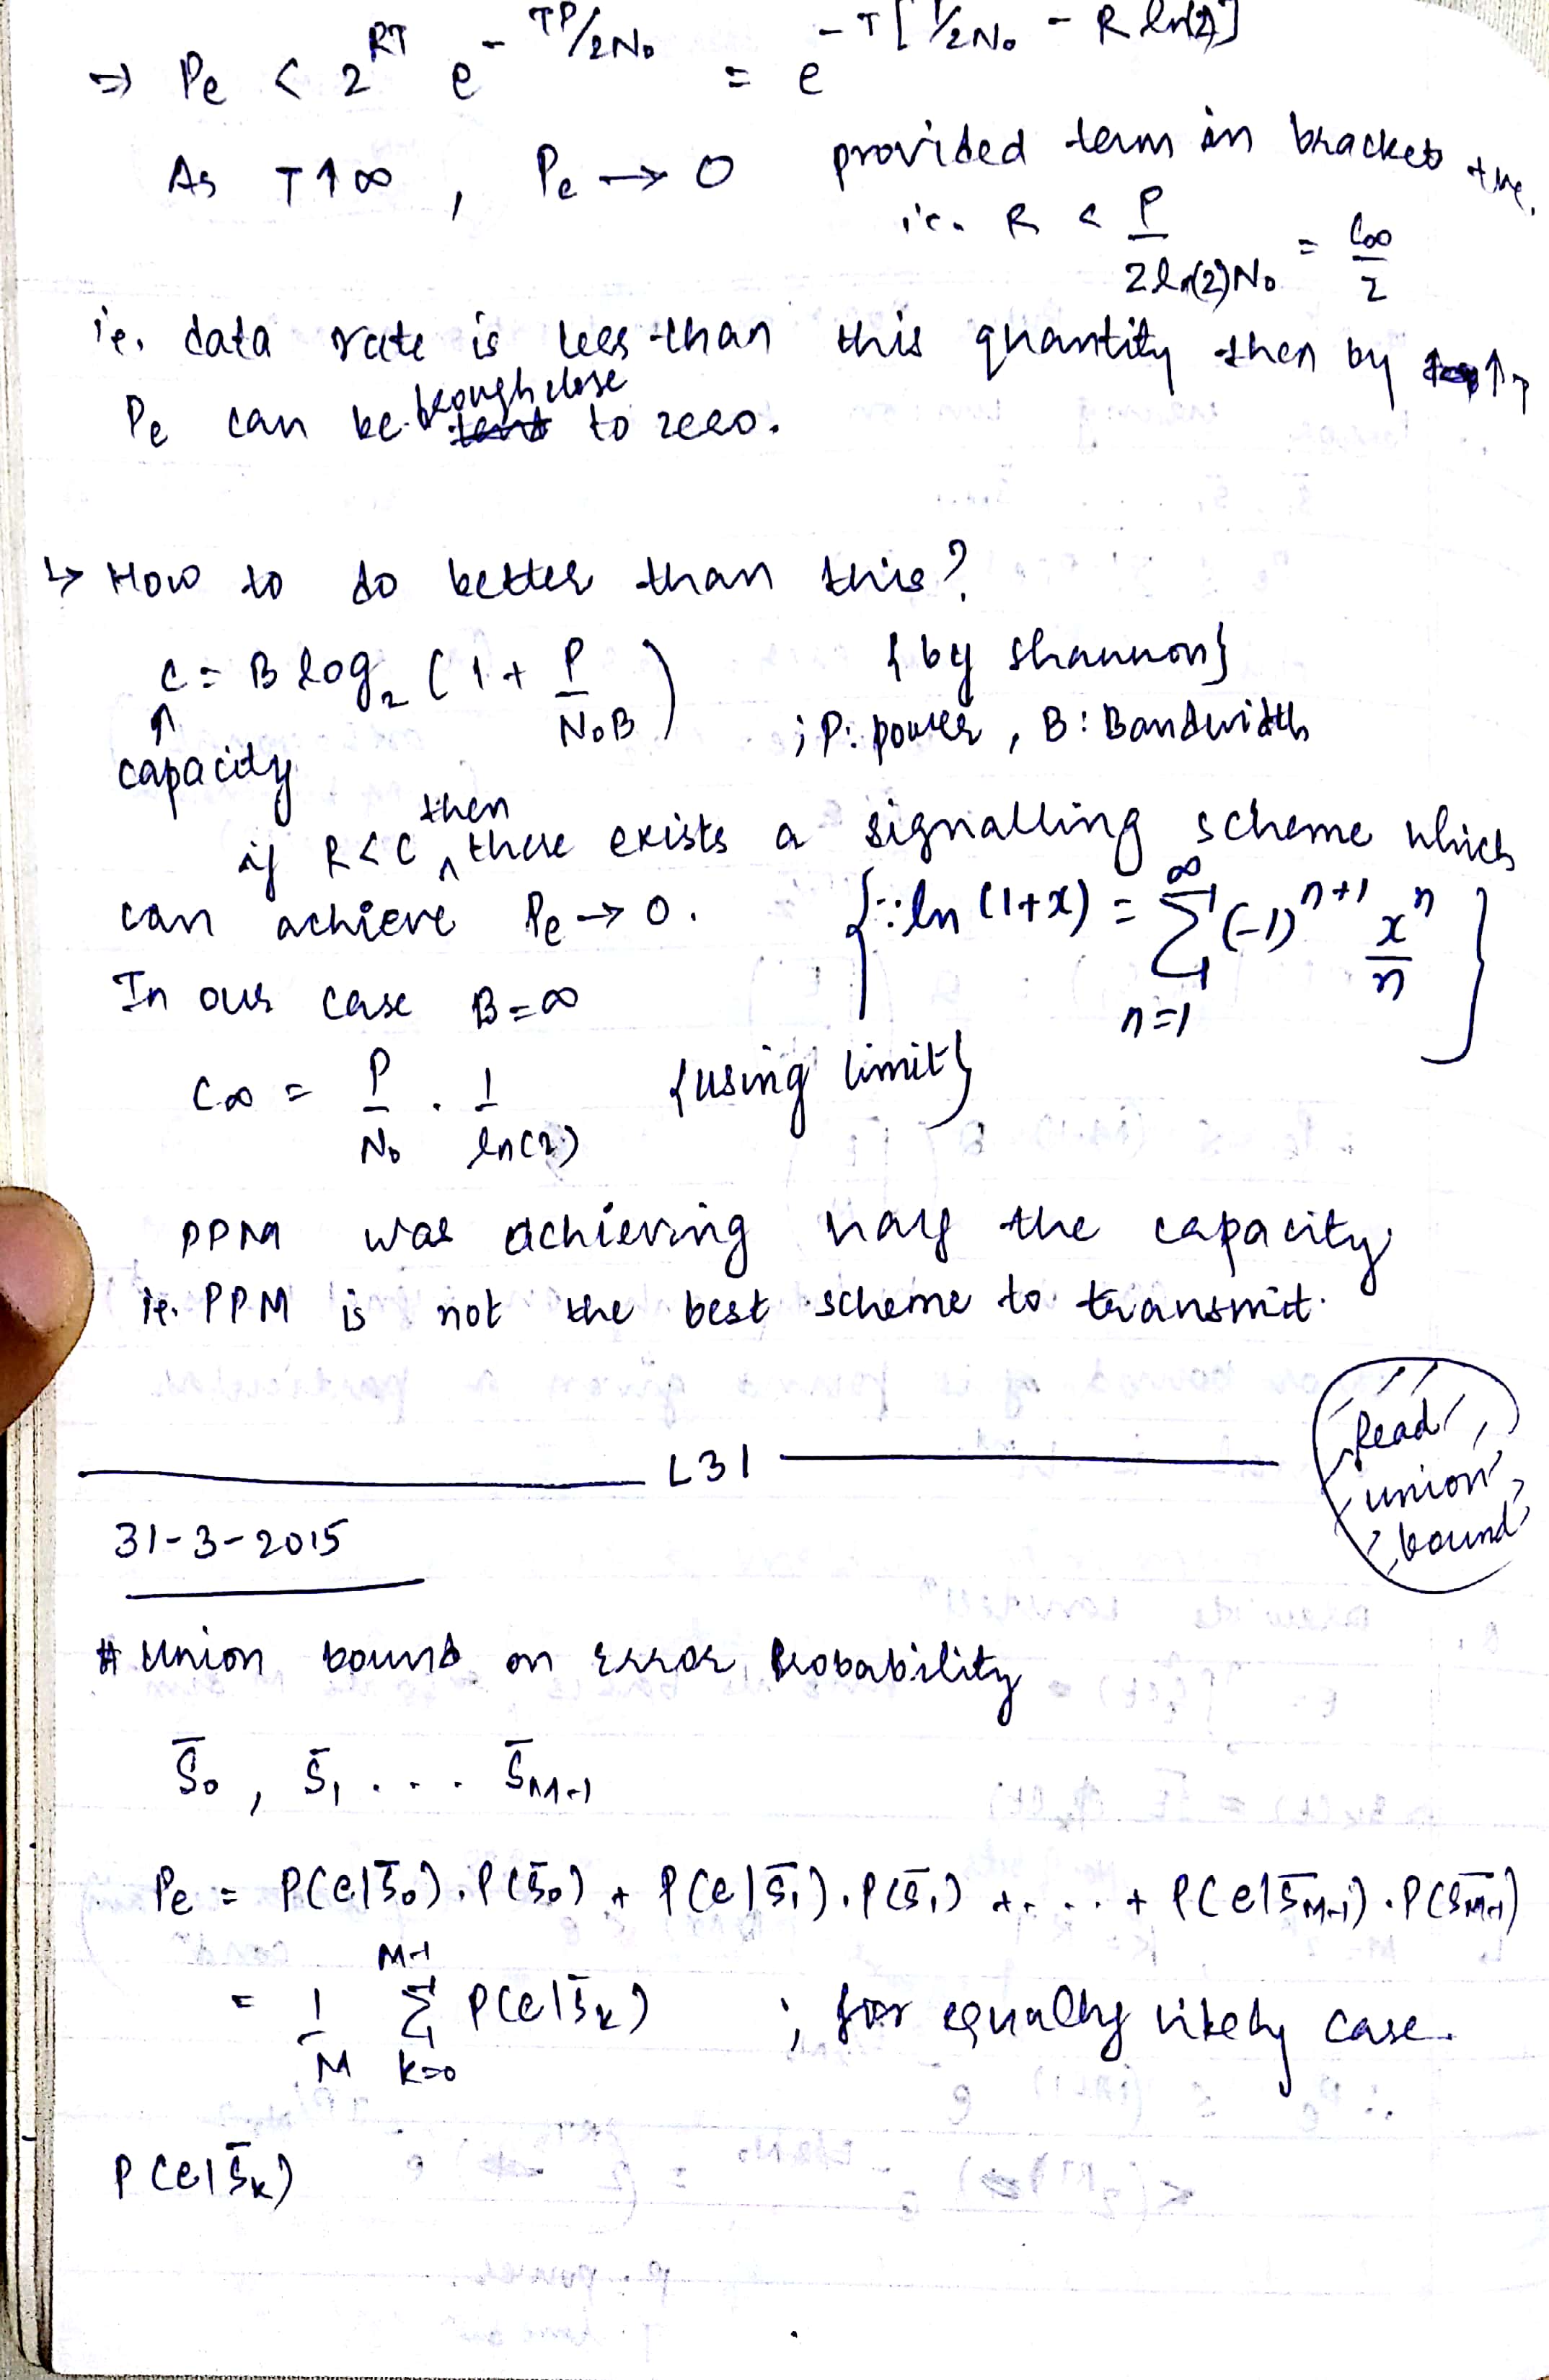 ⇒ Pe < 2^{RT} e^{-TP/2N₀} = e^{-T[P/2N₀ - R ln(2)]}
As T↑∞ , Pe → 0 provided term in bracket +ve.
i.e. R < P/(2 ln(2) N₀) = C∞/2
ie. data rate is less than this quantity then by T↑,
Pe can be brough close to zero.
↳ How to do better than this?
C = B log₂ (1 + P/(N₀B)) {by shannon}
↑ capacity ; P: power , B: Bandwidth
if R<C then there exists a signalling scheme which
can achieve Pe → 0. {∵ ln(1+x) = ∑_{n=1}^{∞} (-1)^{n+1} x^n/n}
In our case B=∞
C∞ = P/N₀ . 1/ln(2) {using limit}
PPM was achieving half the capacity
ie. PPM is not the best scheme to transmit.
L31
Read union bound
31-3-2015
# Union bound on Error Probability
S̄₀ , S̄₁ . . . S̄_{M-1}
Pe = P(e|S̄₀).P(S̄₀) + P(e|S̄₁).P(S̄₁) + . . . + P(e|S̄_{M-1}).P(S̄_{M-1})
= 1/M ∑_{k=0}^{M-1} P(e|S̄_k) ; for equally likely case.
P(e|S̄_k)